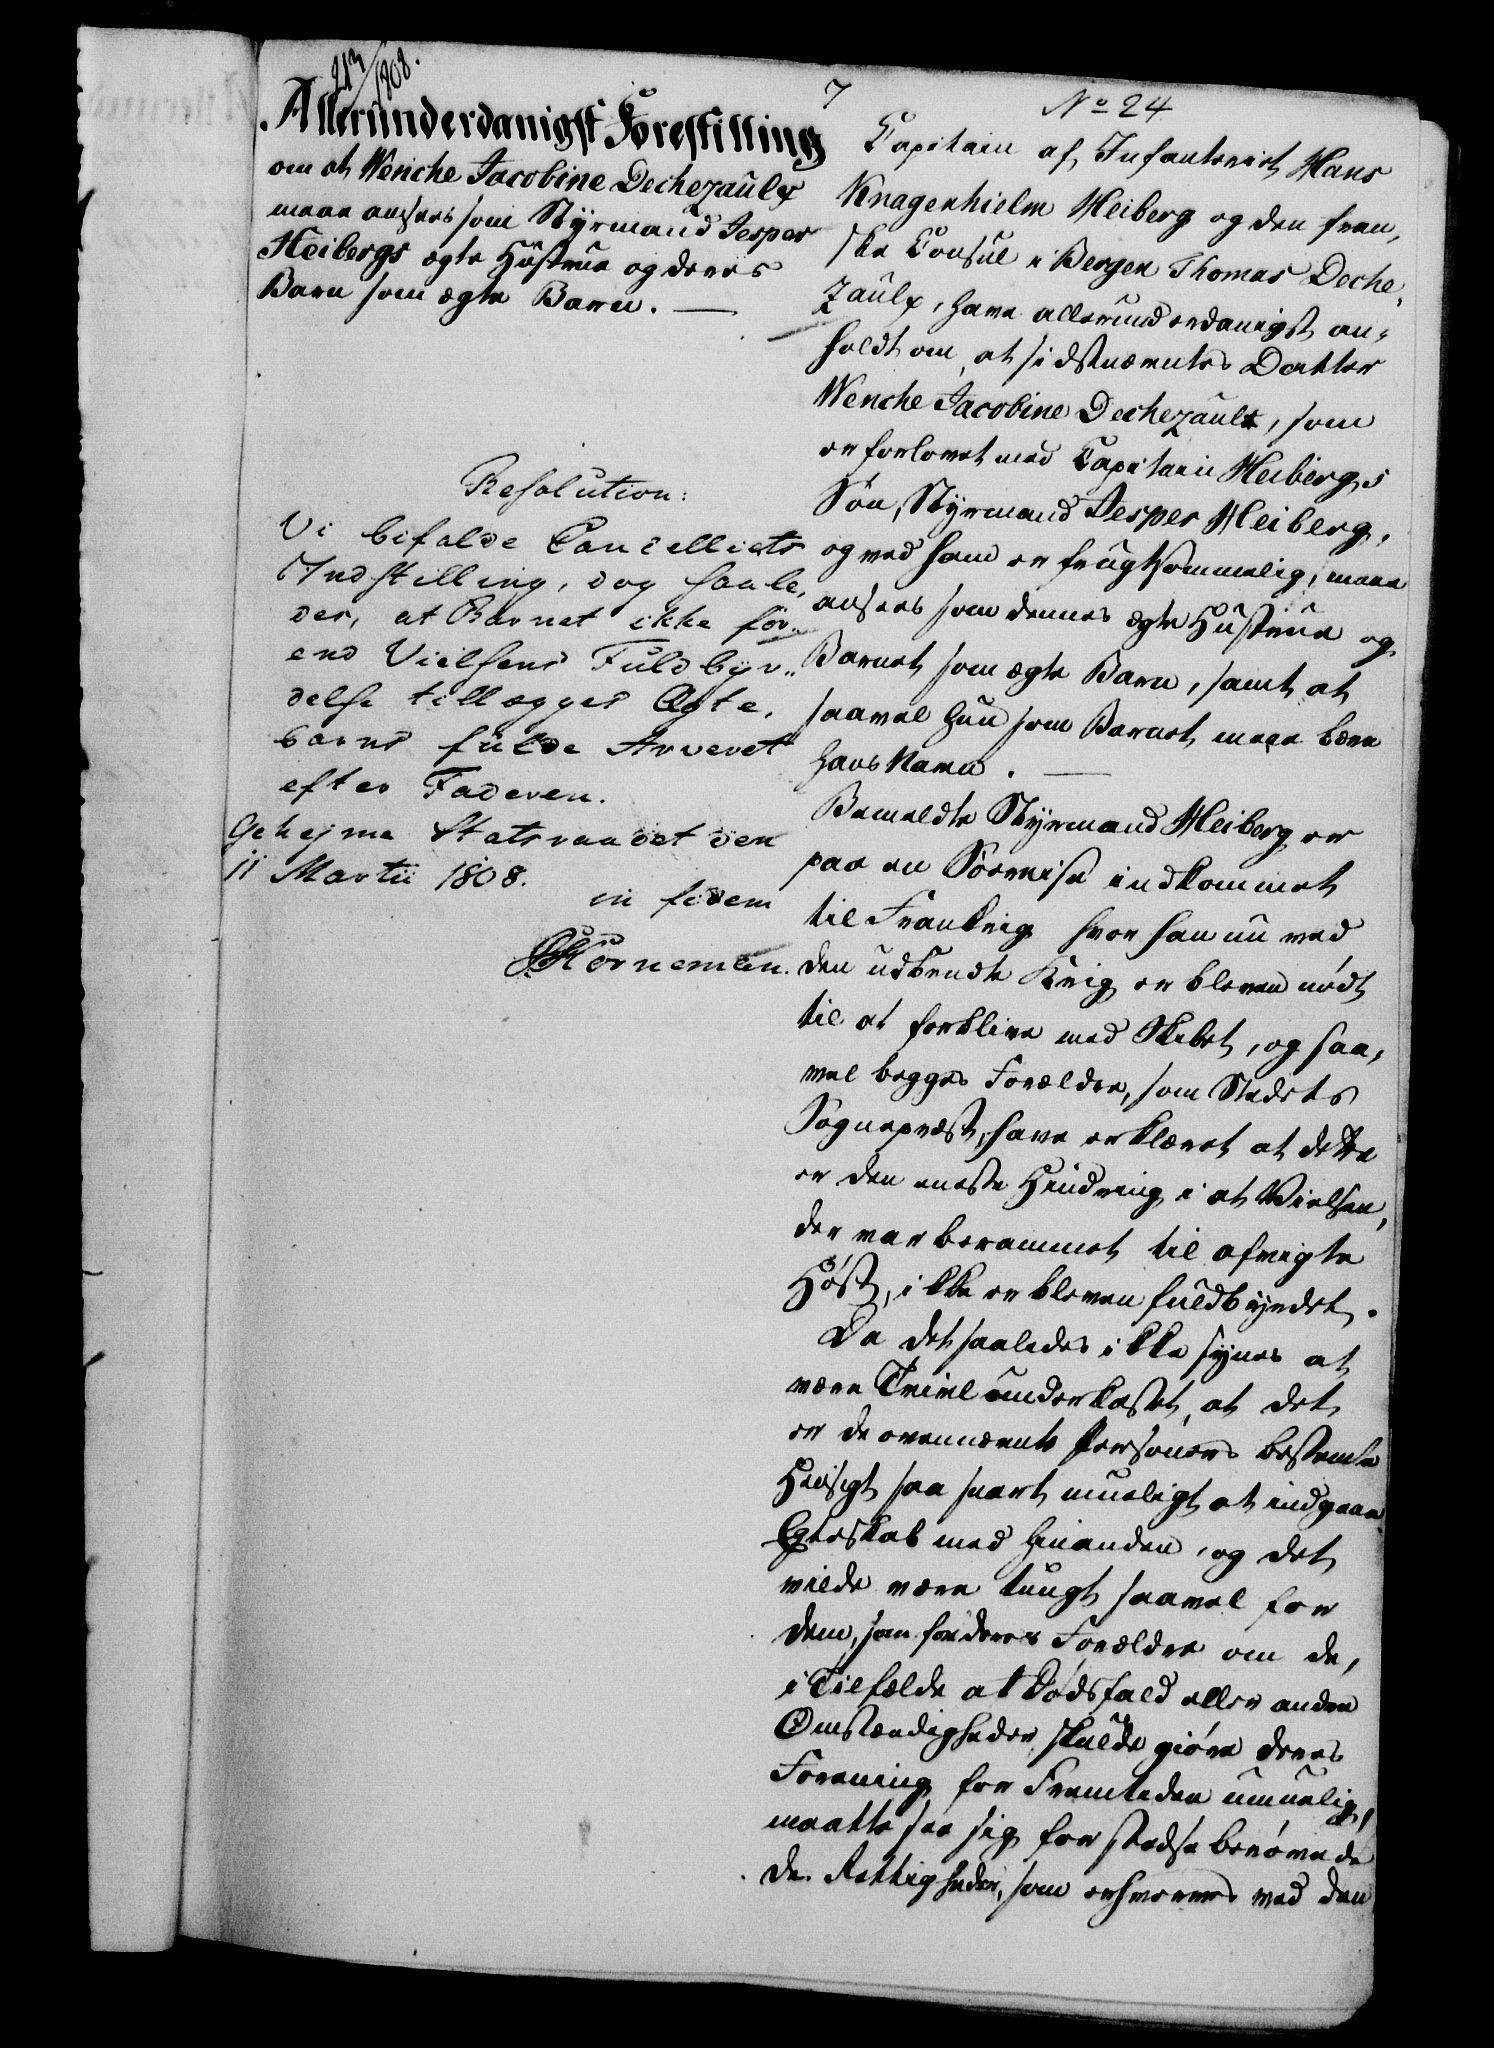 213/1808.
Allerunderdanigst Forestilling
om at Wenche Jacobine Dechezaulx
maae ansees som Styrmand Jesper
Heibergs ægte Hustrue og deres
Barn som ægte Barn. —
Resolution:
Vi bifalde Cancelliets
Indstilling, dog saale,
des, at Barnet ikke før„
end Vielsens Fuldbyr„
delse tillægges Ægte,
barns fulde Arveret
efter Faderen.
Geheime Statsraadet den
11 Martii 1808.
in fidem
Korneman.
7
No 24
Capitain af Infanteriet Hans
Knagenhielm Heiberg og den fran,
ske Consul i Bergen Thomas Deche,
zaulx, have allerunderdanigst an,
holdt om, at sidstnævntes Datter
Wenche Jacobine Dechezaulx, som
er forlovet med Capitain Heibergs
Søn, Styrmand Jesper Heiberg,
og ved ham er frugtsommelig, maae
ansees som dennes ægte Hustrue og
Barnet som ægte Barn, samt at
saavel hun som Barnet maae bære
hans Navn. —
Bemeldte Styrmand Heiberg er
paa en Søereise indkommet
til Frankrig hvor han nu ved
den udbrudte Krig er bleven nødt
til at forblive med Skibet, og saa,
vel begges Forældre, som Stedets
Sognepræst, have erklæret at dette
er den eneste Hindring i at Vielsen,
der var berammet til afvigte
Høst, ikke er bleven fuldbyrdet.
Da det saaledes ikke synes at
være Tvivl underkastet, at det
er de ovennævnte Personers bestemte
Hensigt saa snart mueligt at indgaae
Egteskab med hinanden, og det
vilde være tungt saavel for
dem, som for deres Forældre om de,
i Tilfælde at Dødsfald eller andre
Omstændigheder skulde giøre deres
Forening for Fremtiden umuelig,
maatte see sig for stedse berøvede
de Rettigheder, som erhverves ved den